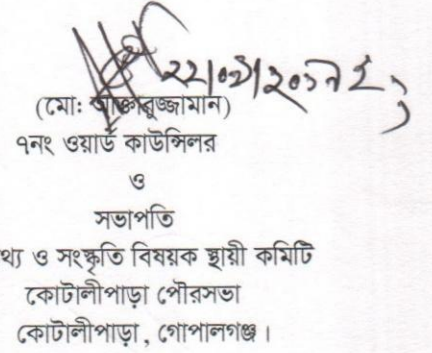 ২২/০৯/২০১৭ ইং
(মোঃ আক্তারুজ্জামান)
৭নং ওয়ার্ড কাউন্সিলর
ও
সভাপতি
থ্য ও সংস্কৃতি বিষয়ক স্থায়ী কমিটি
কোটালীপাড়া পৌরসভা
কোটালীপাড়া, গোপালগঞ্জ।